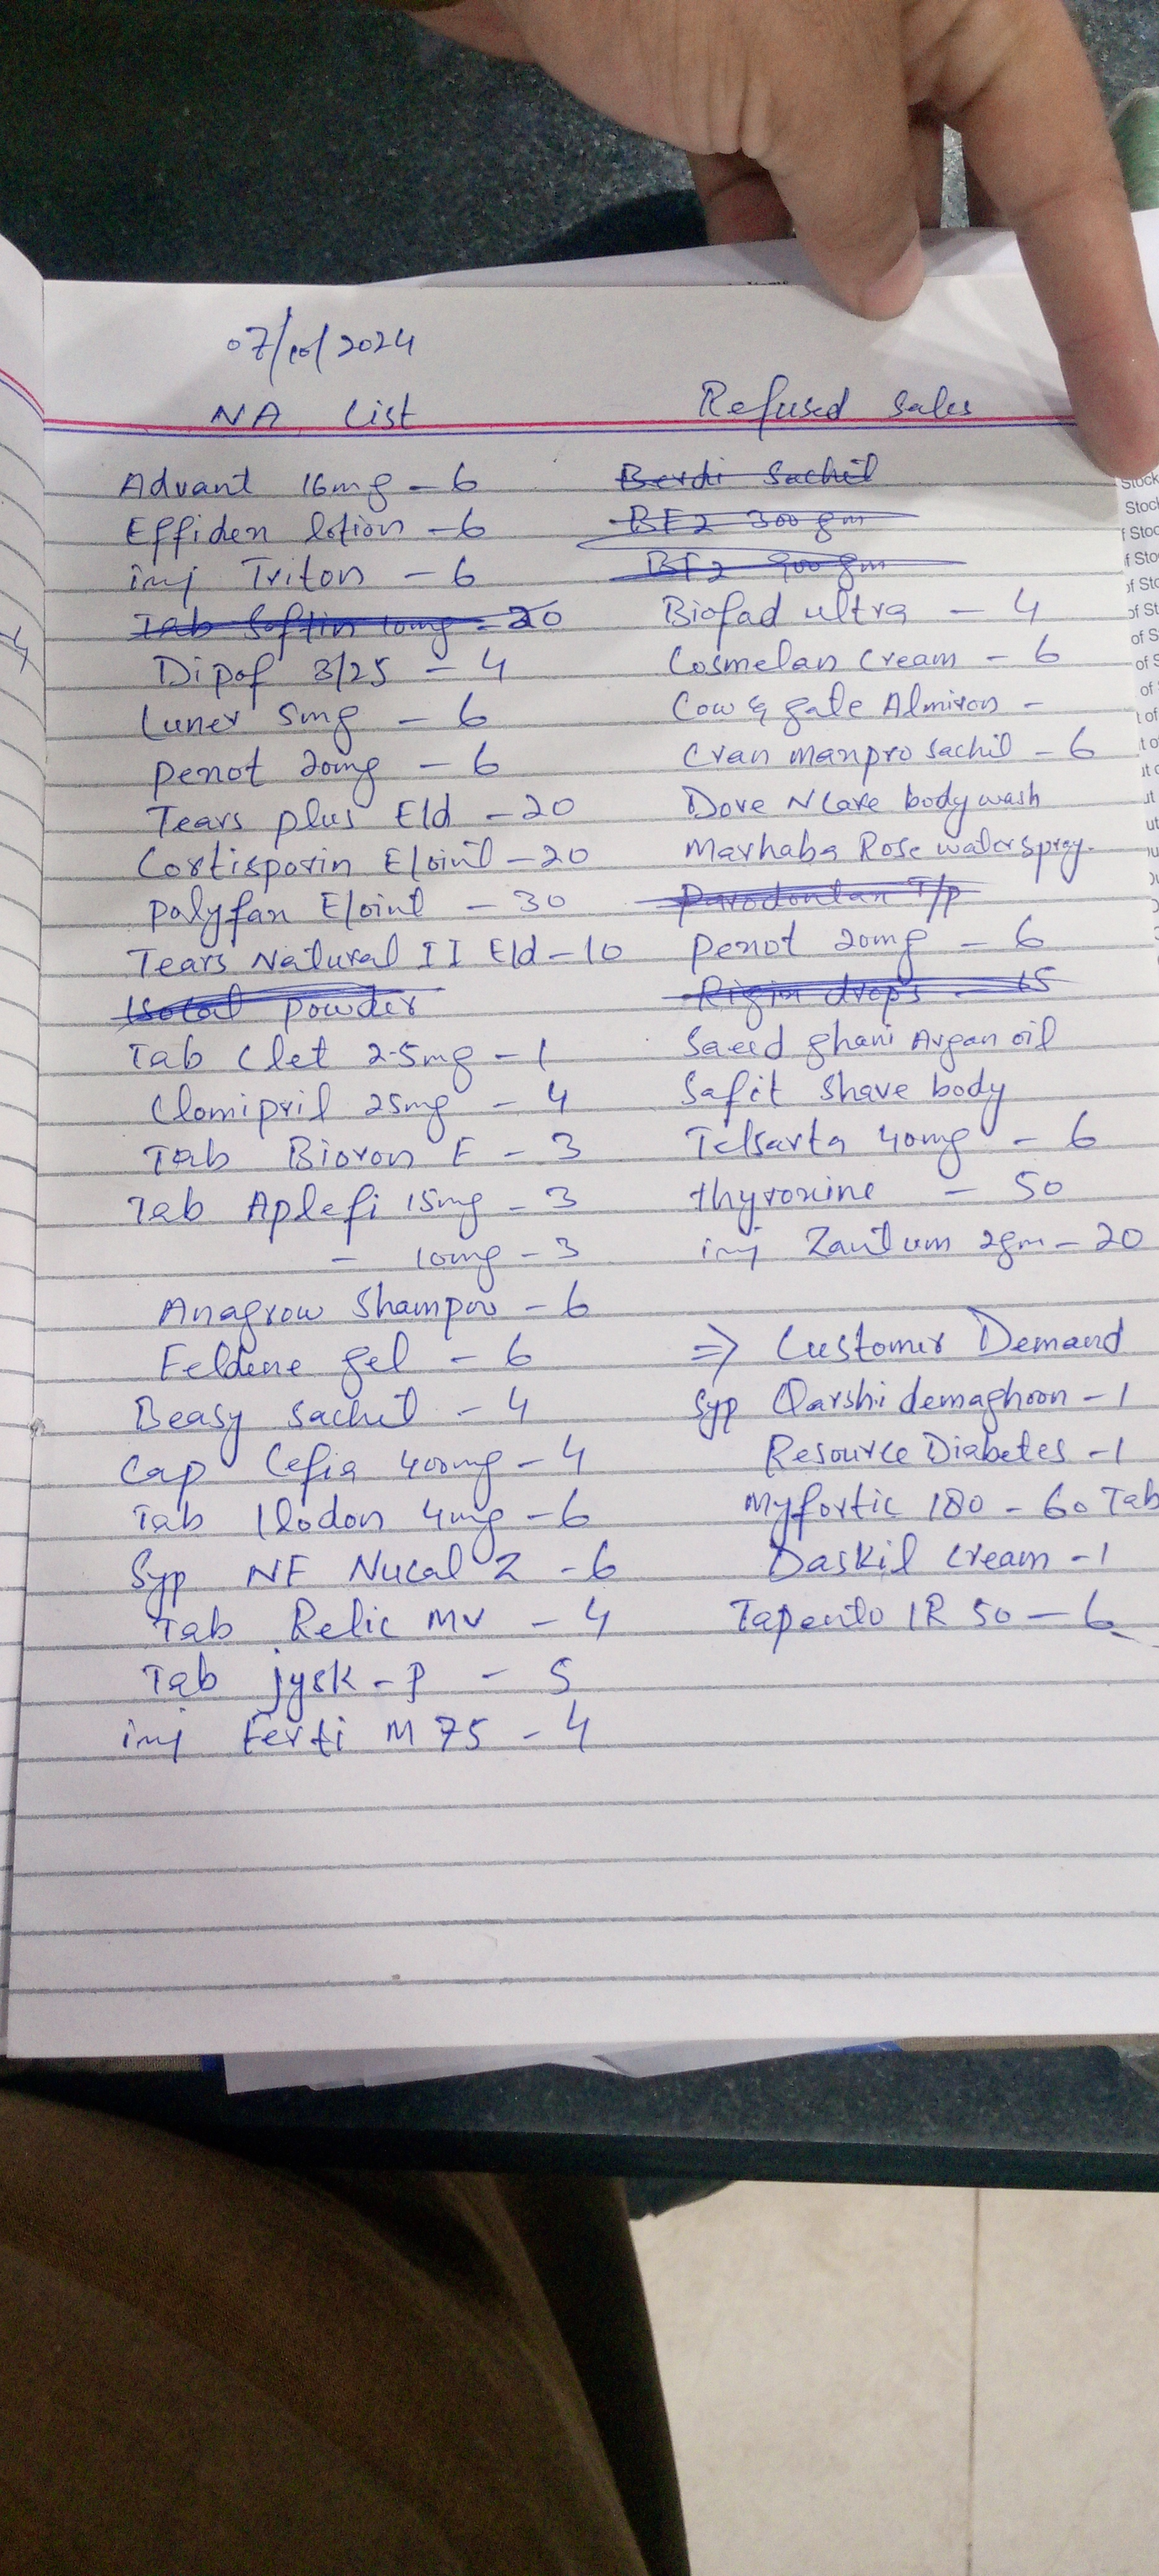 07/10/2024
NA List
Advant 16mg - 6
Effiden lotion - 6
inj Triton - 6
Tab Softin 10mg - 20
Dipof 3/25 - 4
Luner 5mg - 6
Penot 20mg - 6
Tears plus E/d - 20
Cortisporin E/oint - 20
Polyfax E/oint - 30
Tears Natural II E/d - 10
powder
Tab Clet 2.5mg - 1
Clomipril 25mg - 4
Tab Bioron F - 3
Tab Aplefi 15mg - 3
- 10mg - 3
Anagrow Shampoo - 6
Feldene gel - 6
Beasy sachet - 4
Cap Cefia 400mg - 4
Tab Ilodon 4mg - 6
Syp NF Nucal Z - 6
Tab Relic MV - 4
Tab jysk-P - 5
inj Ferti M 75 - 4
Refused Sales
Sachet
BF2 300gm
BF2 900gm
Biofad ultra - 4
Cosmelan Cream - 6
Cow & gate Almiron -
Cran manpro sachet - 6
Dove N Care body wash
Marhaba Rose water spray.
Parodontax T/p
Penot 20mg - 6
Rigix drops - 15
Saeed ghani Argan oil
Safit Shave body
Telsarta 40mg - 6
thyroxine - 50
inj Zantum 2gm - 20
⇒ Customer Demand
Syp Qarshi demaghoon - 1
Resource Diabetes - 1
Myfortic 180 - 60 Tab
Daskil cream - 1
Tapento IR 50 - 6
Stock
Stoc
f Stoc
f Sto
of Stc
of St
of S
of S
of